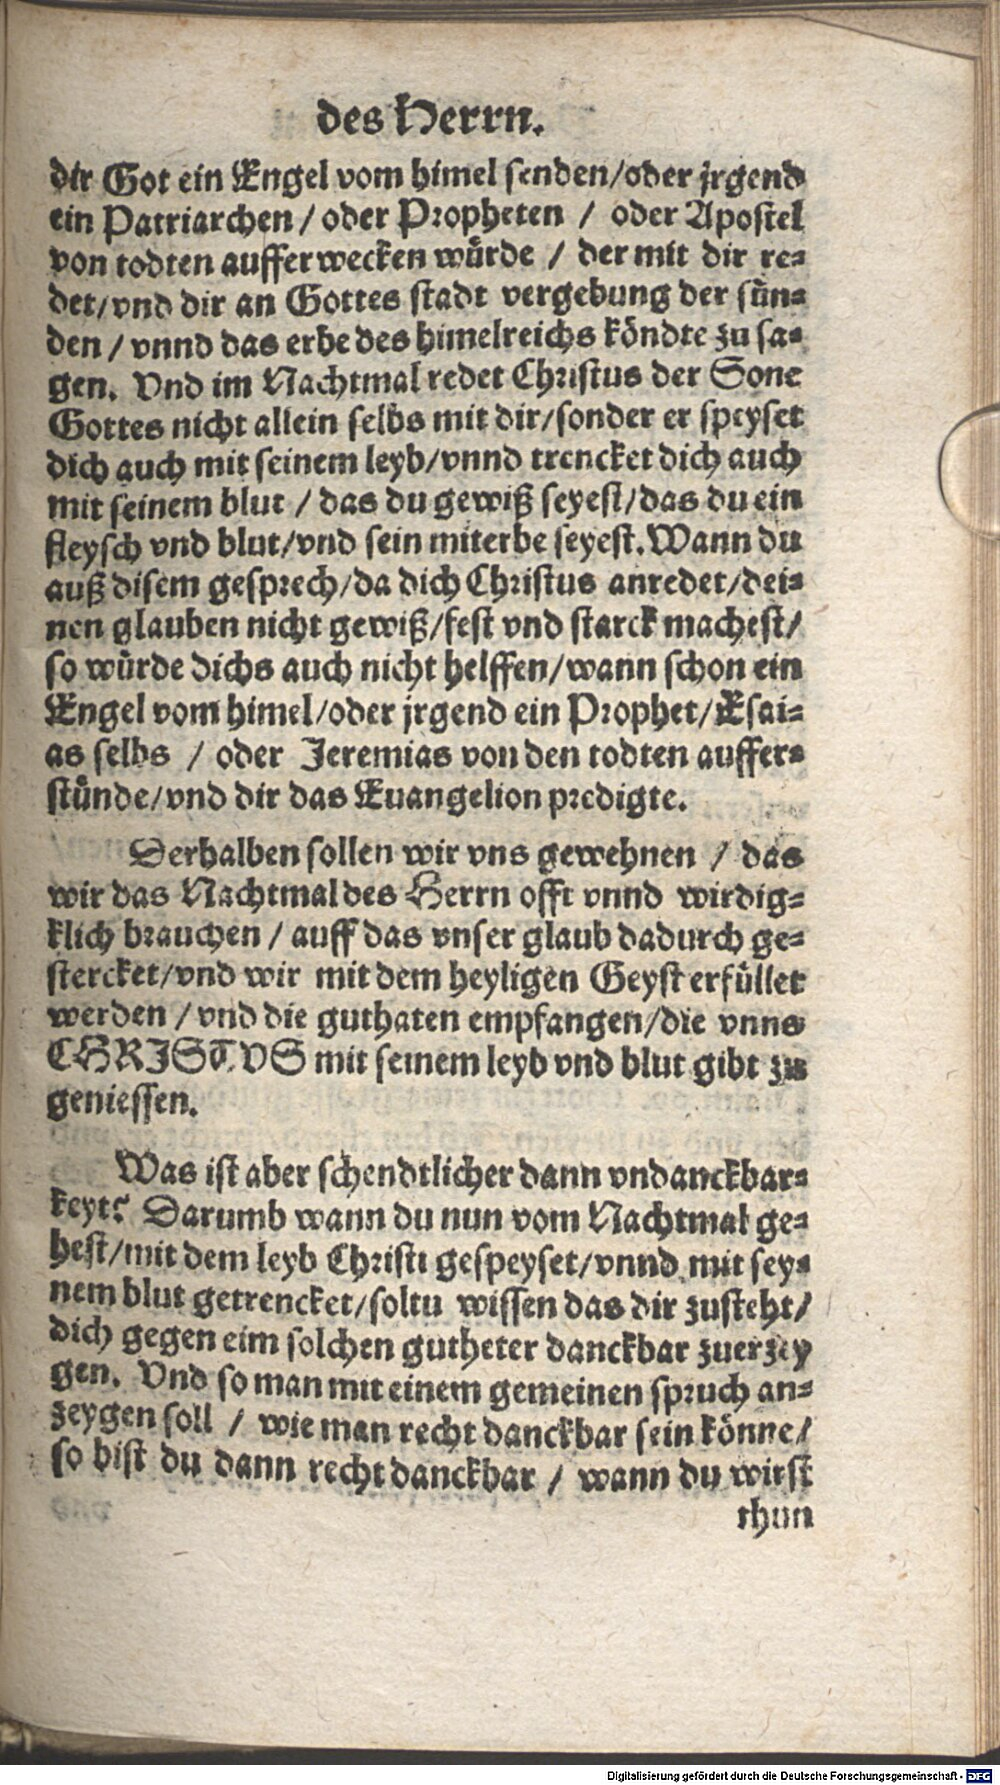 des Herrn.
dir Got ein Engel vom himel senden/oder jrgend
ein Patriarchen / oder Propheten / oder Apostel
von todten aufferwecken würde / der mit dir re-
det/vnd dir an Gottes stadt vergebung der sün-
den / vnnd das erbe des himelreichs köndte zu sa-
gen. Vnd im Nachtmal redet Christus der Sone
Gottes nicht allein selbs mit dir/sonder er speyset
dich auch mit seinem leyb/vnnd trencket dich auch
mit seinem blut / das du gewiß seyest/das du ein
fleysch vnd blut/vnd sein miterbe seyest. Wann du
auß disem gesprech/da dich Christus anredet/dei-
nen glauben nicht gewiß/fest vnd starck machest/
so würde dichs auch nicht helffen/wann schon ein
Engel vom himel/oder jrgend ein Prophet/Esai-
as selbs / oder Jeremias von den todten auffer-
stünde/vnd dir das Euangelion predigte.
Derhalben sollen wir vns gewehnen / das
wir das Nachtmal des Herrn offt vnnd wirdig-
klich brauchen / auff das vnser glaub dadurch ge-
stercket/vnd wir mit dem heyligen Geyst erfüllet
werden / vnd die guthaten empfangen/die vnns
CHRISTVS mit seinem leyb vnd blut gibt zu
geniessen.
Was ist aber schendtlicher dann vndanckbar-
keyt? Darumb wann du nun vom Nachtmal ge-
hest/mit dem leyb Christi gespeyset/vnnd mit sey-
nem blut getrencket/soltu wissen das dir zusteht/
dich gegen eim solchen gutheter danckbar zuerzey
gen. Vnd so man mit einem gemeinen spruch an-
zeygen soll / wie man recht danckbar sein könne/
so bist du dann recht danckbar / wann du wirst
thun
Digitalisierung gefördert durch die Deutsche Forschungsgemeinschaft - DFG